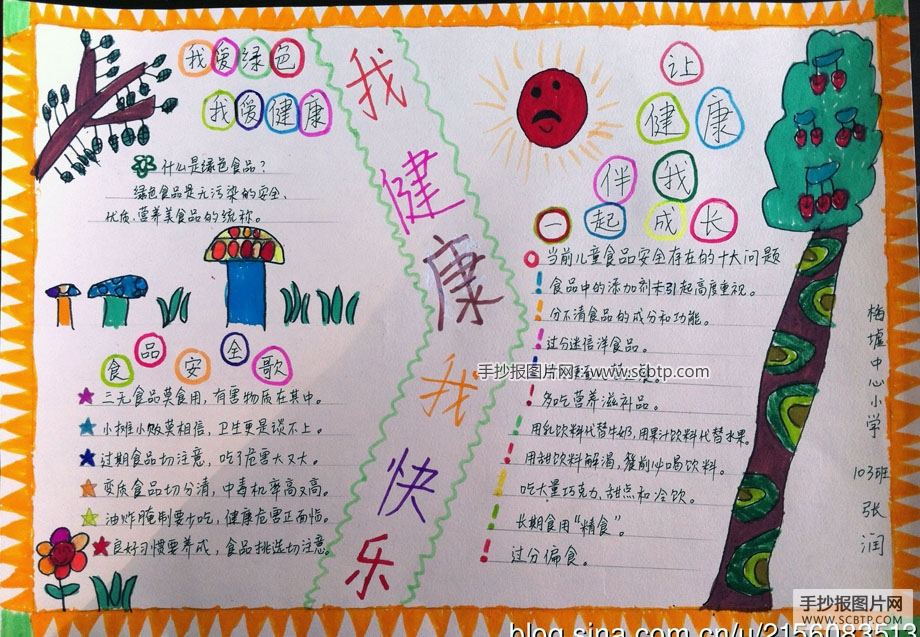 我爱绿色
我爱健康
什么是绿色食品?
绿色食品是无污染的安全、
优质、营养美食品的统称。
食品安全歌
三无食品莫食用,有害物质在其中。
小摊小贩莫相信,卫生更是谈不上。
过期食品切注意,吃了危害大又大。
变质食品切分清,中毒机率高又高。
油炸腌制要少吃,健康危害正面临。
良好习惯要养成,食品挑选切注意。
我健康我快乐
让
健康
伴我
一起成长
当前儿童食品安全存在的十大问题
食品中的添加剂未引起高度重视。
分不清食品的成分和功能。
过分迷信洋食品。
手抄报图片网 www.scbtp.com
多吃营养滋补品。
用乳饮料代替牛奶,用果汁饮料代替水果。
用甜饮料解渴,餐前冲喝饮料。
吃大量巧克力,甜点和冷饮。
长期食用“精食”。
过分偏食。
梅墟中心小学
103班
张润
手抄报图片网
WWW.SCBTP.COM
blog.sina.com.cn/u/2156083513